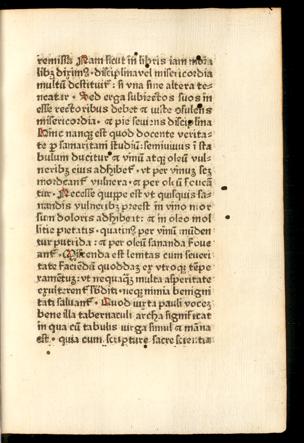 remissa. Nam sicut in libris iam mora
libꝫ diximꝰ · disciplina vel misericordia
multū destituit᷑ · si vna sine altera te-
neatur · Sed erga subiectos suos in
esse rectoribus debet ⁊ iuste ↄsulens
misericordia · ⁊ pie seuiens disciplina
Hinc nanqꝫ est quod docente verita-
te ꝑ samaritani studiū : semiuiuus ī sta
bulum ducitur ⁊ vinū atqꝫ oleū vul-
neribꝫ eius adhibet᷑ · vt per vinuꝫ
mordeant᷑ vulnera · ⁊ per oleū foueā
tur · Necesse quippe est vt quisquis sa-
nandis vulneribꝫ preest in vino mor
sum doloris adhibeat : ⁊ in oleo mol
litie pietatis · quatinꝰ per vinū mūden
tur putrida : ⁊ per oleū sananda foue
ant᷑ · Miscenda est lenitas cum seueri
tate faciendū quoddaꝫ ex vtroqꝫ tēpe
ramētuꝫ : vt neqꝫ multa asperitate
exulcerent᷑ sbditi · neqꝫ nimia benigni
tati soluant᷑ · Quod iuxta pauli voceꝫ
bene illa tabernaculi archa significat
in qua cū tabulis virga simul ⁊ māna
est · quia cum scripture sacre scientia